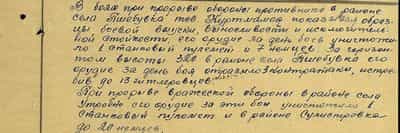 В боях при прорыве обороны противника в районе
села Пшебувка тов. Журтманов показал образ-
цы боевой выучки, выносливости и исключитель-
ной стойкости его орудие за день боя уничтожи-
ло 1 станковый пулемет и 7 немцев. За горизон-
том высоты 320 в районе села Пшебувка его
орудие за день боя отразило 3 контратаки, истре-
бив до 13 гитлеровцев.
При прорыве вражеской обороны в районе села
его орудие за эти бои уничтожило 2
станковый пулемет и в районе
до 20 немцев.